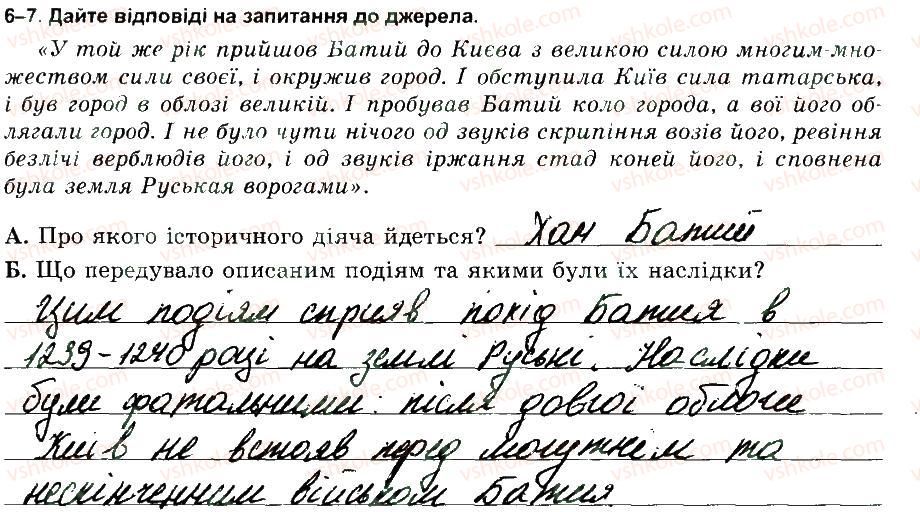 6–7. Дайте відповіді на запитання до джерела.
«У той же рік прийшов Батий до Києва з великою силою многим-мно-
жеством сили своєї, і окружив город. І обступила Київ сила татарська,
і був город в облозі великій. І пробував Батий коло города, а вої його об-
лягали город. І не було чути нічого од звуків скрипіння возів його, ревіння
безлічі верблюдів його, і од звуків іржання стад коней його, і сповнена
була земля Руськая ворогами».
А. Про якого історичного діяча йдеться? Хан Батий
Б. Що передувало описаним подіям та якими були їх наслідки?
Цим подіям сприяв похід Батия в
1239-1240 році на землі Руські. Наслідки
були фатальними: після довгої облоги
Київ не встояв перед могутнім та
нескінченним військом Батия